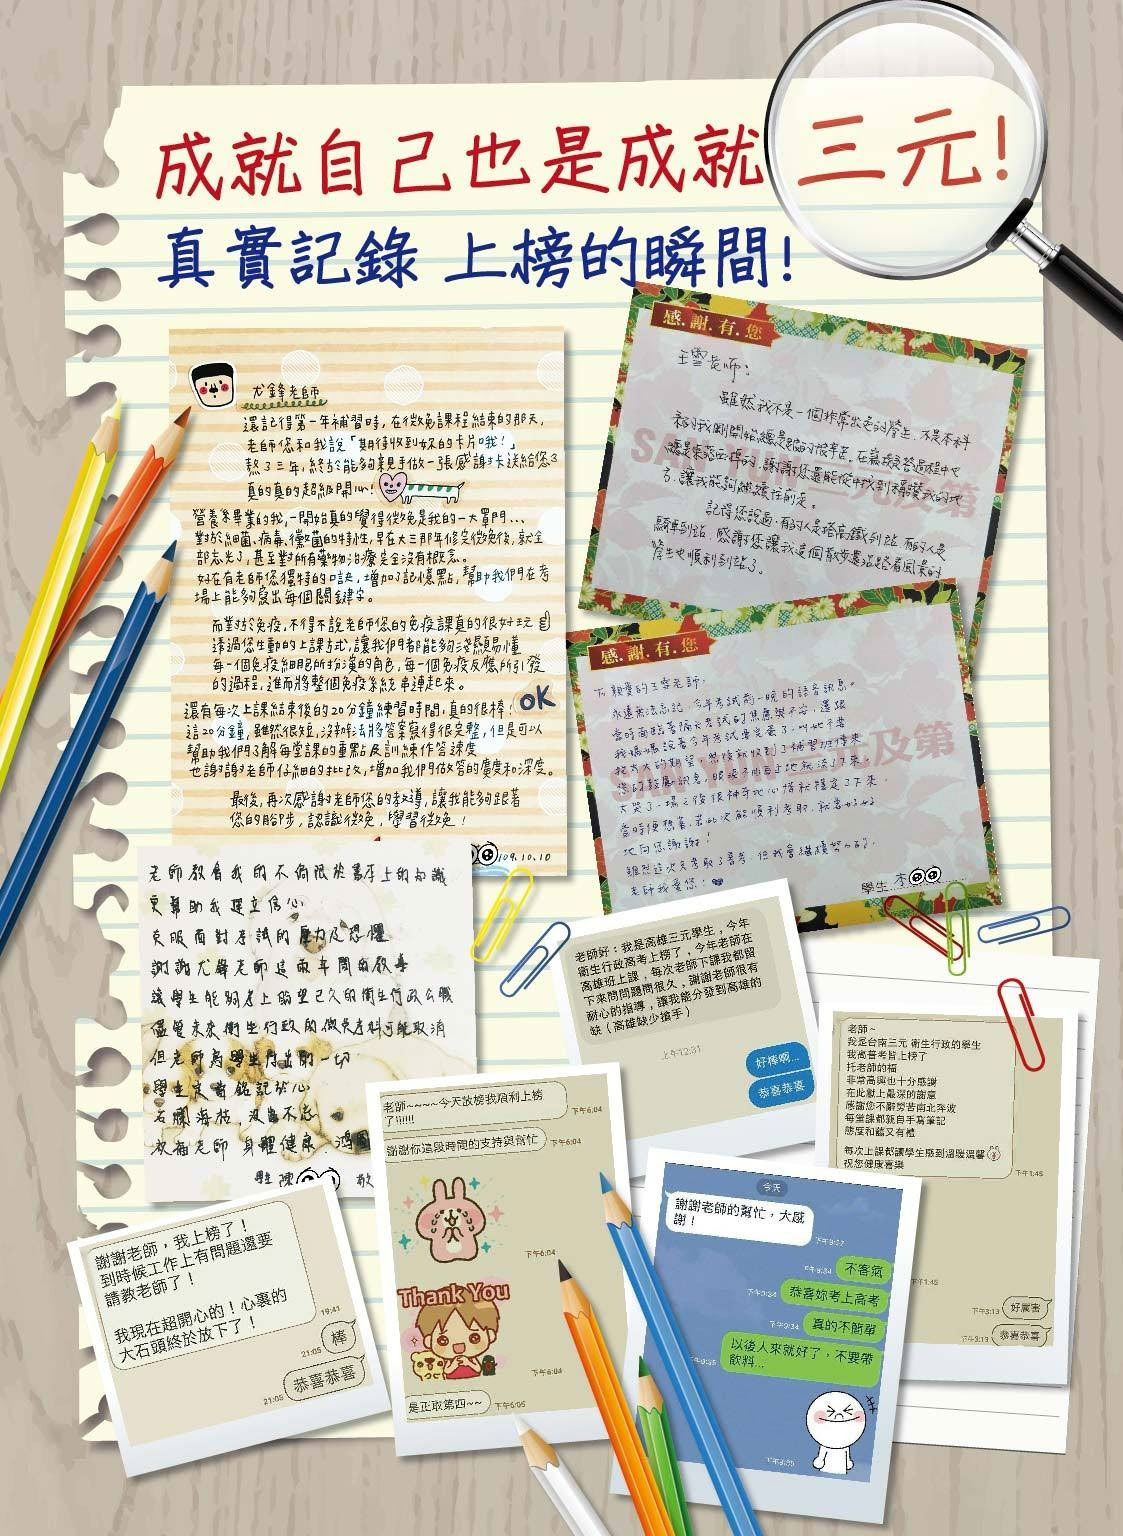 成就自己也是成就三元!
真實記錄 上榜的瞬間!
尤鋒老師
還記得第一年補習時,在微免課程結束的那天,
老師您和我說「期待收到妳的卡片哦!」
熬了三年,終於能夠親手做一張感謝卡送給您了
真的真的超級開心!
營養系畢業的我,一開始真的覺得微免是我的一大罩門...
對於細菌、病毒、黴菌的特性,早在大三那年修完微免後,就全
部忘光了,甚至對所有藥物治療完全沒有概念。
好在有老師您獨特的口訣,增加了記憶點,幫助我們在考
場上能夠寫出每個關鍵字。
而對於免疫,不得不說老師您的免疫課真的很好玩
透過您生動的上課方式,讓我們都能夠淺顯易懂
每一個免疫細胞所扮演的角色,每一個免疫反應所引發
的過程,進而將整個免疫系統串連起來。
還有每次上課結束後的20分鐘練習時間,真的很棒! OK
這20分鐘,雖然很短,沒辦法將答案寫得很完整,但是可以
幫助我們了解每堂課的重點及訓練作答速度
也謝謝老師仔細的批改,增加我們做答的廣度和深度。
最後,再次感謝老師您的教導,讓我能夠跟著
您的腳步,認識微免,學習微免!
109.10.10
感.謝.有.您
王雪老師:
雖然我不是一個非常出色的學生,又是不本科
系的我剛開始總是聽的很辛苦。在
總是
方,讓我能夠繼續往前走。
記得您說過:有的人是搭高鐵到站,有的人是
騎車到站,感謝您讓我這個散步還沿路看風景的
學生也順利到站了。
SAN YUN三元及第
感.謝.有.您
To 親愛的王雪老師,
永遠無法忘記,今年考試前一晚的語音訊息。
當時面臨著隔天考試的焦慮與不安,還跟
我媽媽說著今年考試要完蛋了,叫她不要
抱太大的期望,然後就收到了補習班傳來
您的鼓勵訊息,眼淚不由自主地就流了下來。
大哭了一場之後很神奇地心情就穩定了下來,
當時便想著,若此次能順利考取,就當好好
地向您謝謝!
雖然這次只考取了普考,但我會繼續努力的,
老師我愛您!
學生 李
SAN YUN三元及第
老師教會我的不侷限於書本上的知識
更幫助我建立信心
克服面對考試的壓力及恐懼
謝謝尤鋒老師這兩年間的教導
讓學生能夠考上盼望已久的衛生行政公職
儘管未來衛生行政的微免考科可能取消
但老師為學生付出的一切
學生定當銘記於心
石爛海枯,沒齒不忘
祝福老師 身體健康
學生 陳 敬
老師好:我是高雄三元學生,今年
衛生行政高考上榜了,今年老師在
高雄班上課,每次老師下課我都留
下來問問題問很久,謝謝老師很有
耐心的指導,讓我能分發到高雄的
缺(高雄缺少搶手)
上午12:31
好棒啊...
恭喜恭喜
老師~
我是台南三元 衛生行政的學生
我高普考皆上榜了
托老師的福
非常高興也十分感謝
在此獻上最深的謝意
感謝您不辭勞苦南北奔波
每堂課都就自手寫筆記
態度和藹又有禮
每次上課都讓學生感到溫暖溫馨
祝您健康喜樂
下午1:45
下午1:45
好厲害
下午3:13
恭喜恭喜
下午3:13
老師~~~~今天放榜我順利上榜
了!!!!!!
下午6:04
謝謝你這段時間的支持與幫忙
下午6:04
下午6:04
Thank You
下午6:04
是正取第四~~
下午6:05
今天
謝謝老師的幫忙,大感
謝!
不客氣
恭喜妳考上高考
真的不簡單
以後人來就好了,不要帶
飲料...
謝謝老師,我上榜了!
到時候工作上有問題還要
請教老師了!
我現在超開心的!心裏的
大石頭終於放下了!
19:41
棒
21:05
恭喜恭喜
21:05